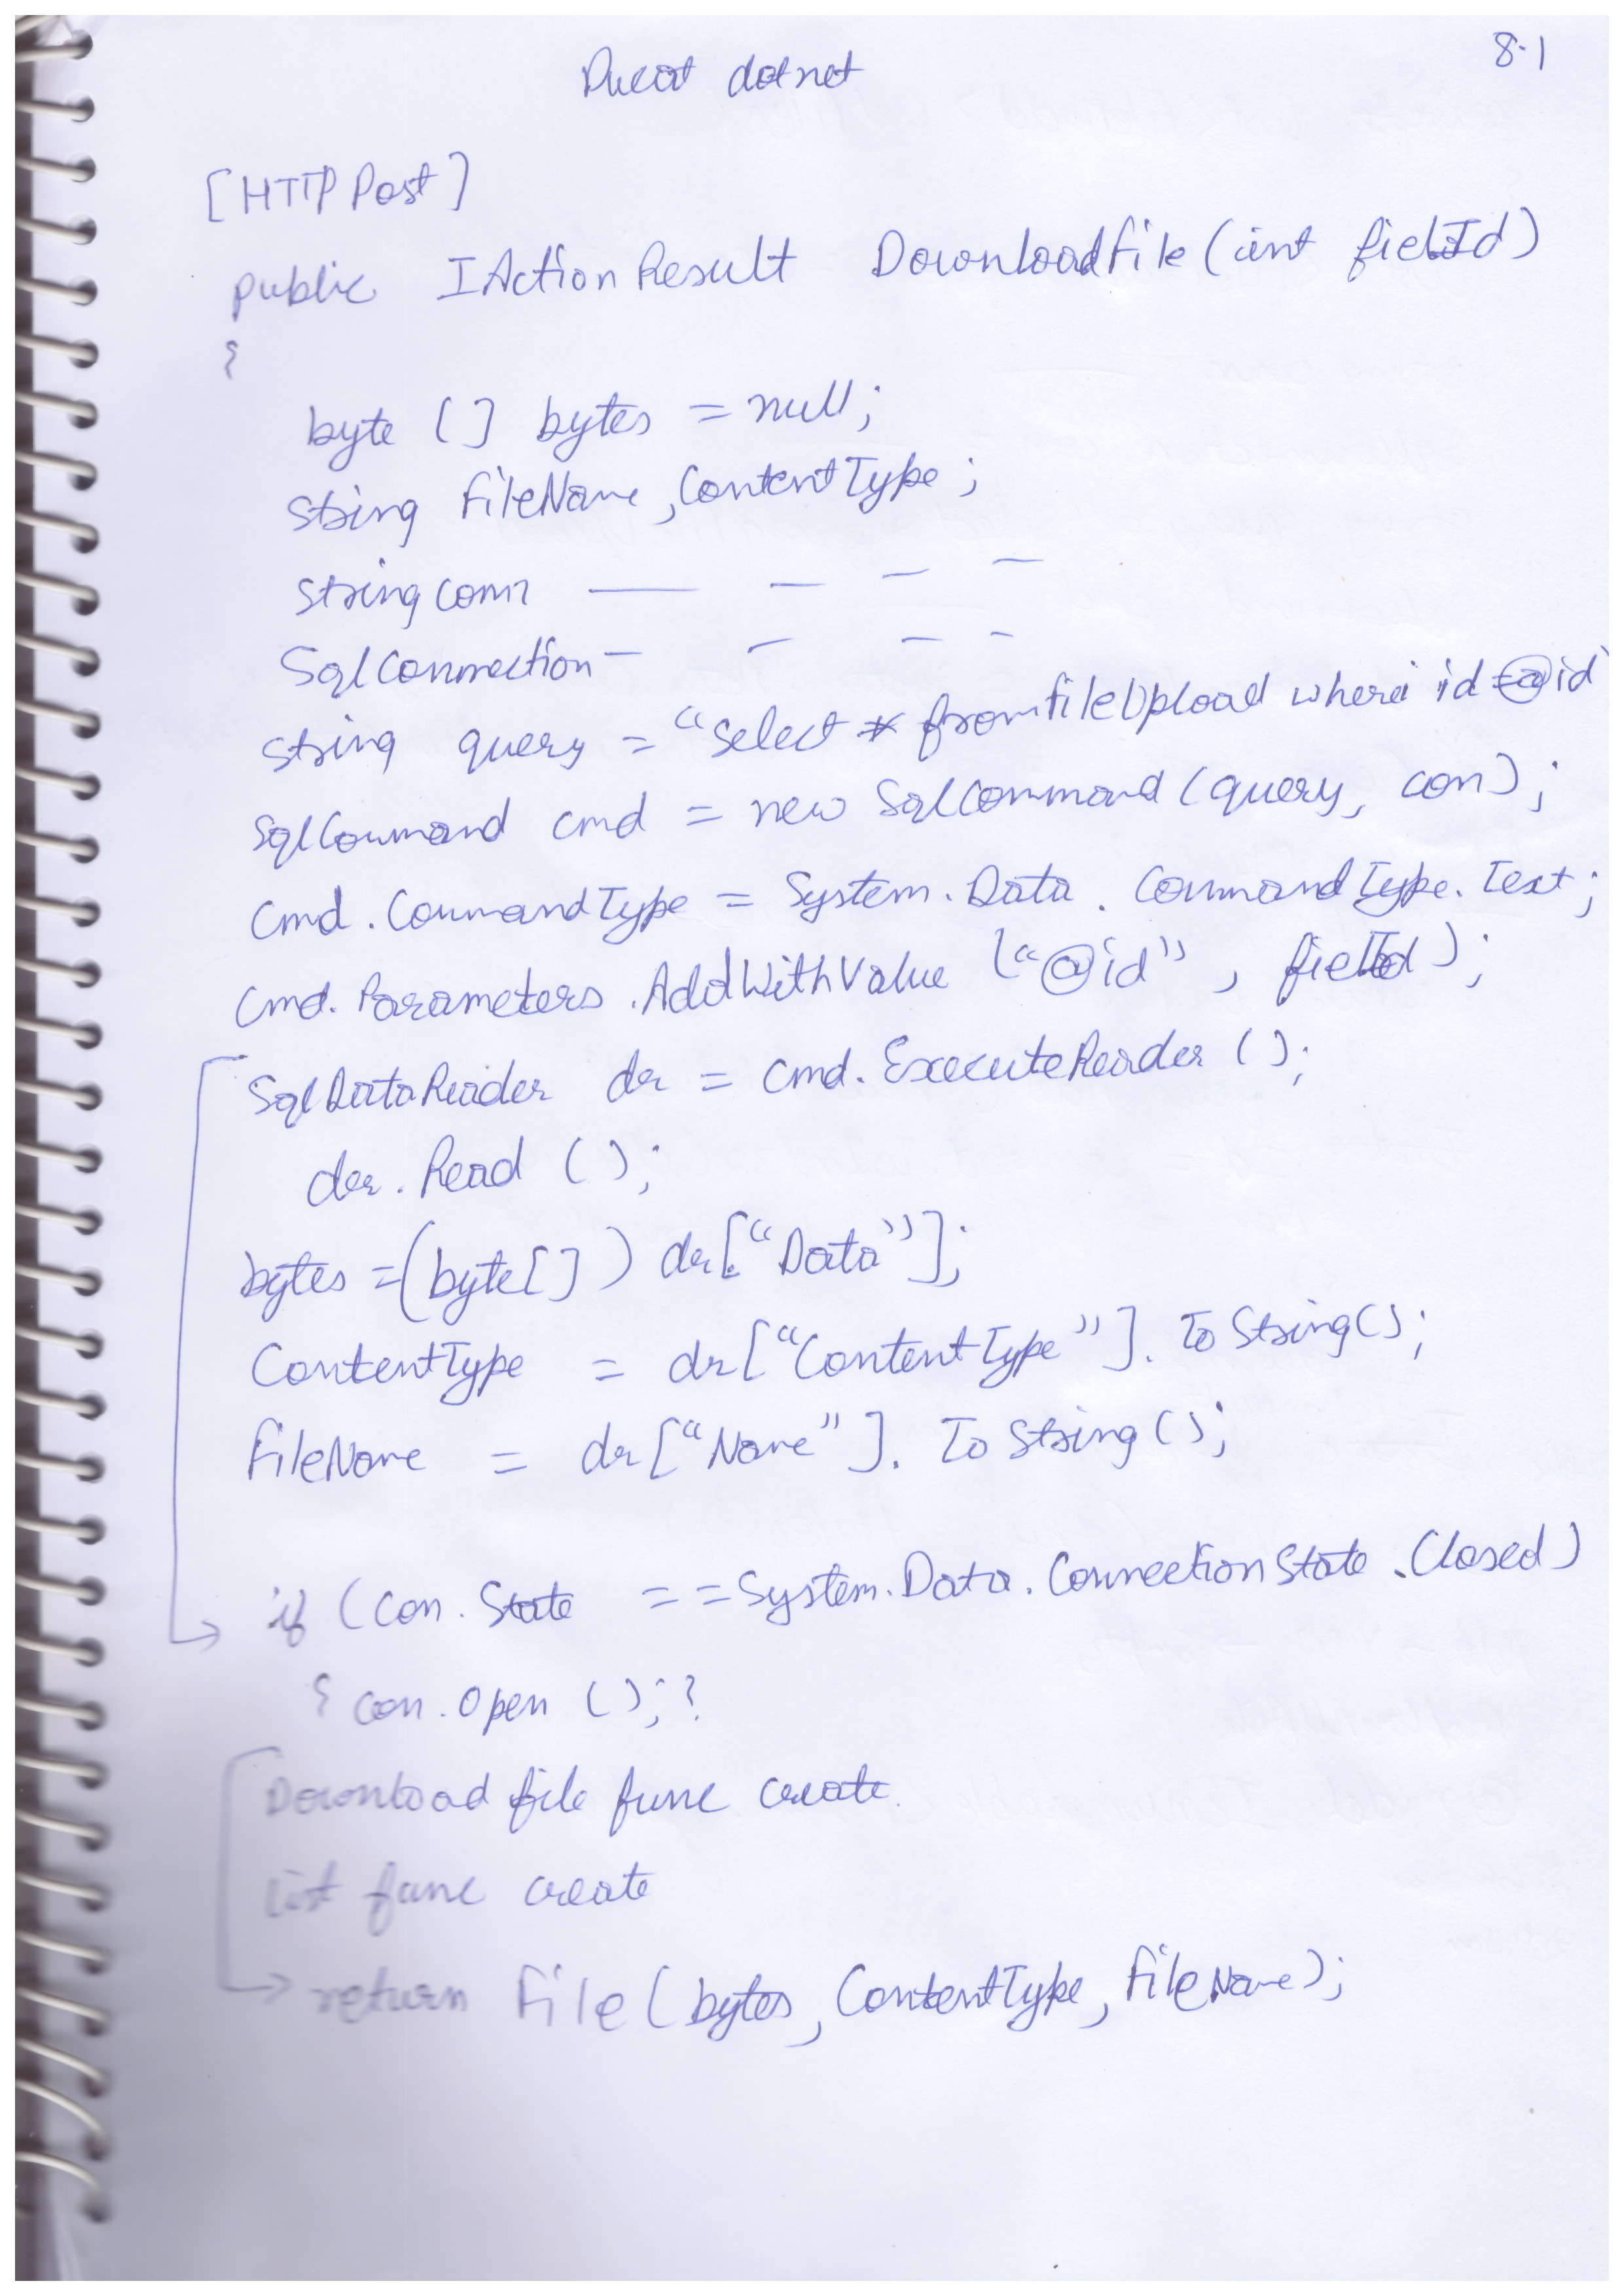 8.1
Ducat dotnet
[HTTP Post]
public IActionResult DownloadFile (int fieldId)
{
byte [] bytes = null;
string FileName, ContentType;
string conn — — — —
SqlConnection — — — —
string query = "select * from fileUpload where id = @id"
SqlCommand cmd = new SqlCommand (query, con);
cmd.CommandType = System.Data.CommandType.Text;
cmd.Parameters.AddWithValue ("@id", fieldId);
SqlDataReader dr = cmd.ExecuteReader ();
dr.Read ();
bytes = (byte[]) dr["Data"];
ContentType = dr["ContentType"].ToString();
FileName = dr["Name"].ToString();
if (con.State == System.Data.ConnectionState.Closed)
{ con.Open (); }
Download file func create.
List func create
return File (bytes, ContentType, FileName);